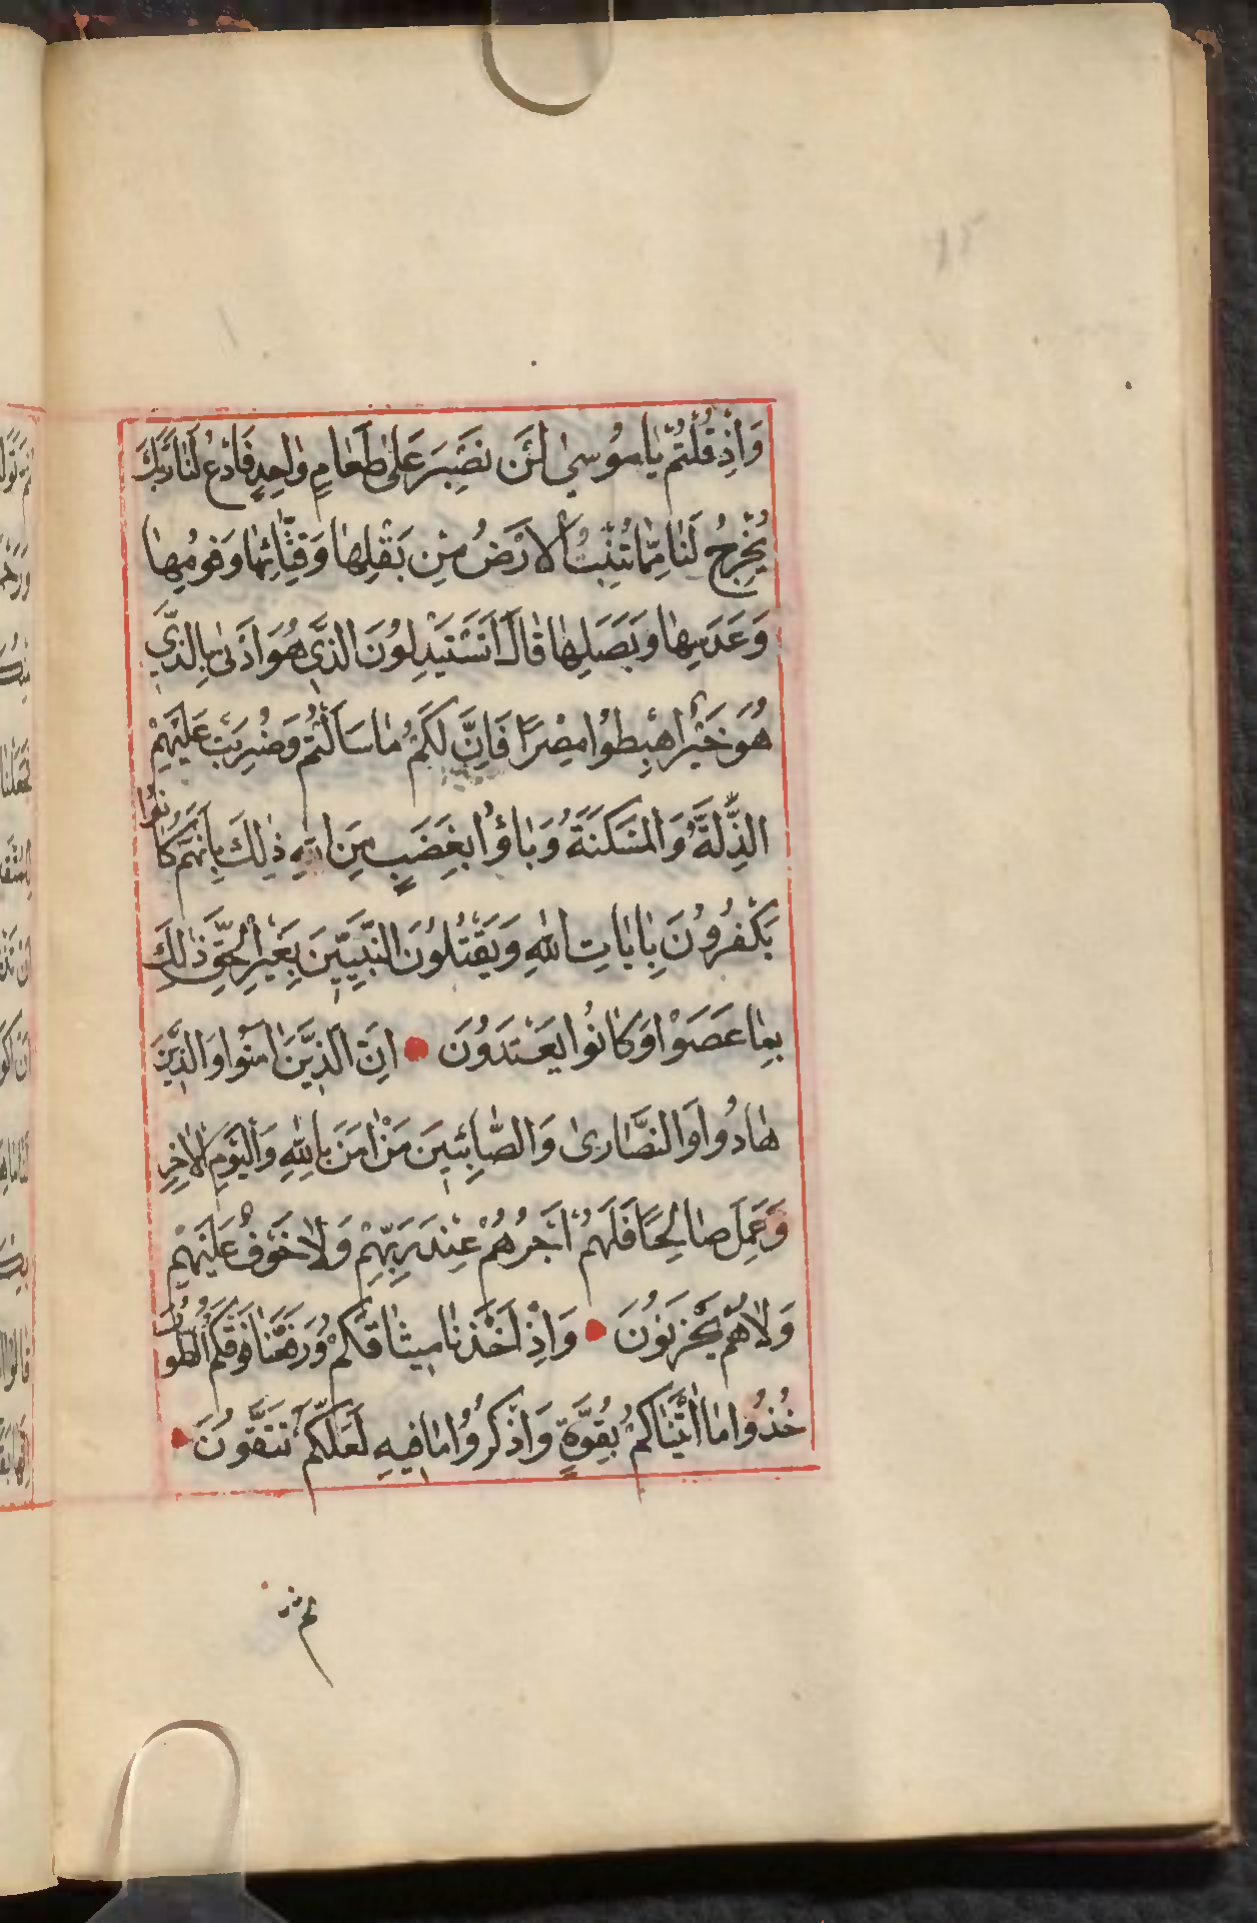 وَاِذْ قُلْتُمْ يٰامُوسىٰ لَنْ نَصْبِرَ عَلىٰ طَعٰامٍ وٰاحِدٍ فَادْعُ لَنٰا رَبَّكَ
يُخْرِجْ لَنٰا مِمّٰا تُنْبِتُ الْاَرْضُ مِنْ بَقْلِهٰا وَقِثّٰائِهٰا وَفُومِهٰا
وَعَدَسِهٰا وَبَصَلِهٰا قٰالَ اَتَسْتَبْدِلُونَ الَّذى هُوَ اَدْنىٰ بِالَّذي
هُوَ خَيْرٌ اهْبِطُوا مِصْرًا فَاِنَّ لَكُمْ مٰا سَاَلْتُمْ وَضُرِبَتْ عَلَيْهِمُ
الذِّلَّةُ وَالْمَسْكَنَةُ وَبٰاؤُا بِغَضَبٍ مِنَ اللهِ ذٰلِكَ بِاَنَّهُمْ كٰانُوا
يَكْفُرُونَ بِاٰيٰاتِ اللهِ وَيَقْتُلُونَ النَّبِيّينَ بِغَيْرِ الْحَقِّ ذٰلِكَ
بِمٰا عَصَوْا وَكٰانُوا يَعْتَدُونَ اِنَّ الَّذِينَ اٰمَنُوا وَالَّذِينَ
هٰادُوا وَالنَّصٰارىٰ وَالصّٰابِئِينَ مَنْ اٰمَنَ بِاللهِ وَالْيَوْمِ الْاٰخِرِ
وَعَمِلَ صٰالِحًا فَلَهُمْ اَجْرُهُمْ عِنْدَ رَبِّهِمْ وَلٰا خَوْفٌ عَلَيْهِمْ
وَلٰا هُمْ يَحْزَنُونَ وَاِذْ اَخَذْنٰا مِيثٰاقَكُمْ وَرَفَعْنٰا فَوْقَكُمُ الطُّورَ
خُذُوا مٰا اٰتَيْنٰاكُمْ بِقُوَّةٍ وَاذْكُرُوا مٰا فِيهِ لَعَلَّكُمْ تَتَّقُونَ